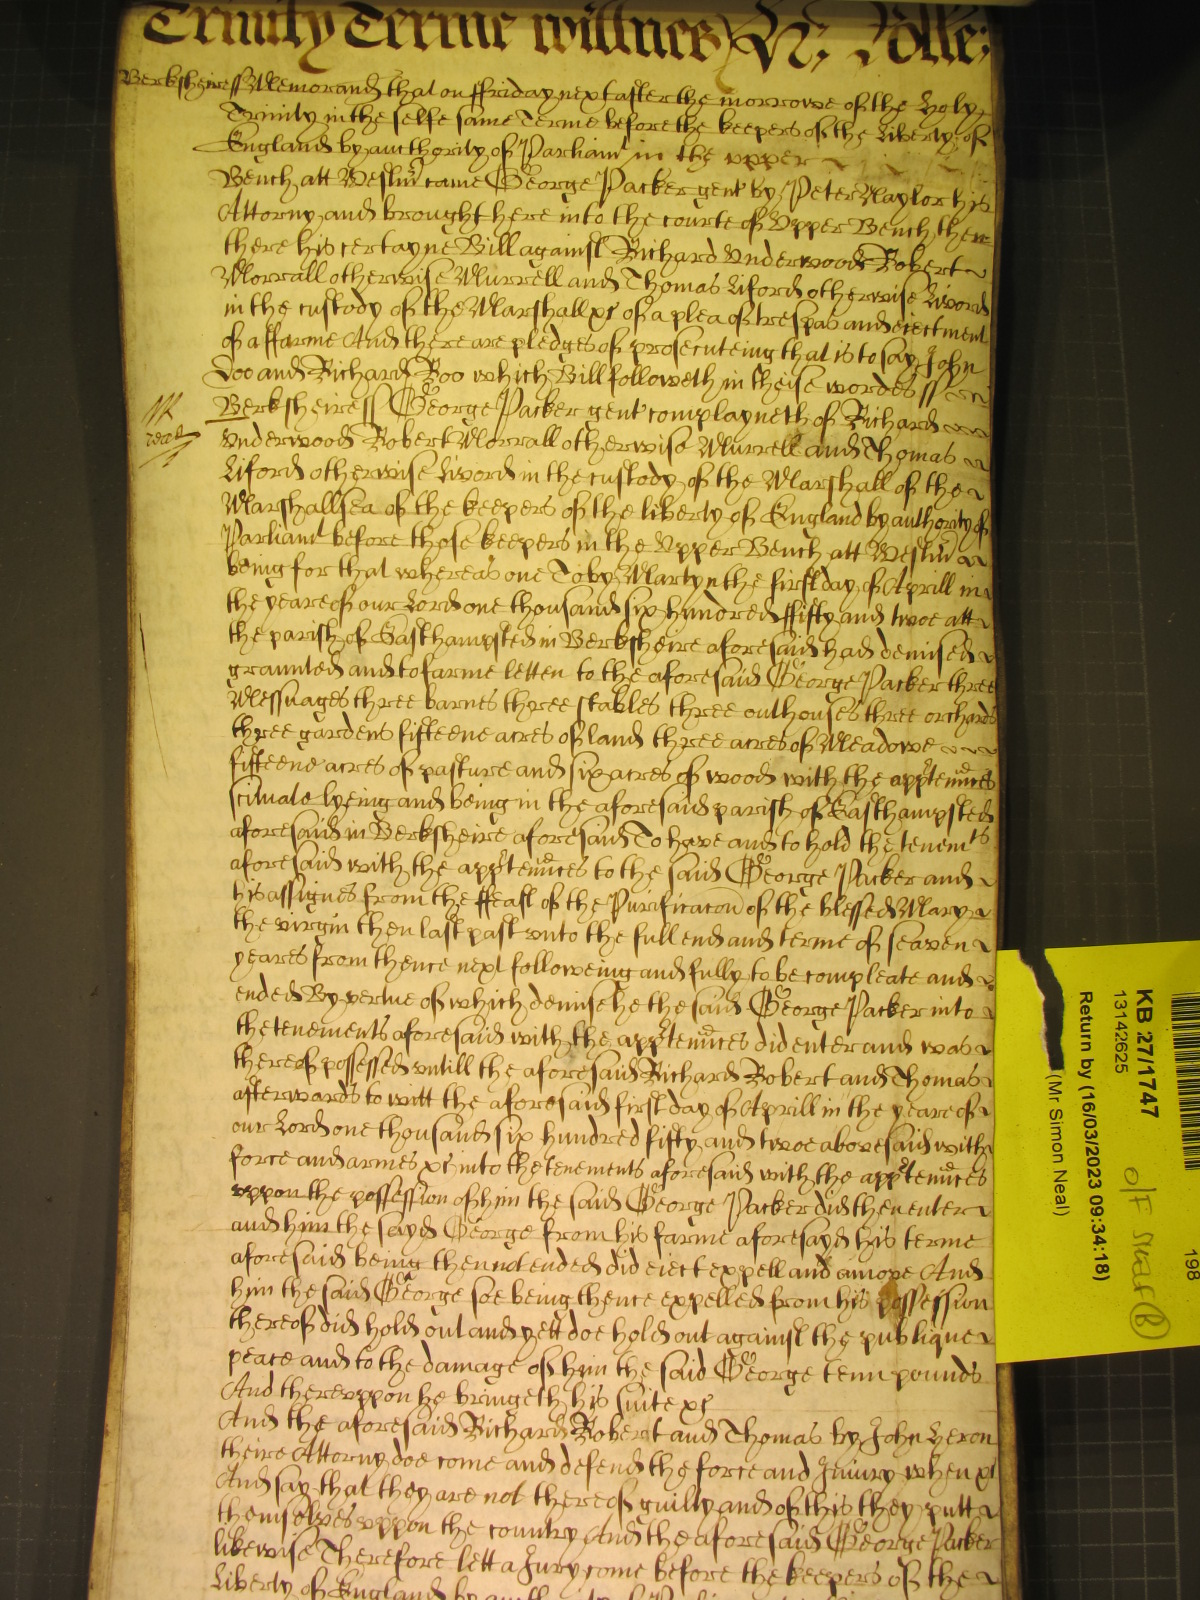 Trinity Terme willmes Rolle
Berksheire ss Memorand that on ffriday next after the morrowe of the holy
Trinity in the selfe same Terme before the keepers of the liberty of
England by authority of Parliamt in the upper
Bench att Westmr came George Packer gent by Peter Naylor his
Attorny and brought here into the courte of Upper Bench then
there his certayne Bill against Richard Underwood Robert
Morrall otherwise Murrell and Thomas Liford otherwise Liword
in the custody of the Marshall xc of a plea of trespas and eiectment
of a ffarme And there are pledges of prosecuteing that is to say John
Doo and Richard Roo which Bill followeth in theise wordes ss
Berksheire ss George Packer gent complayneth of Richard
Underwood Robert Morrall otherwise Murrell and Thomas
Liford otherwise Liword in the custody of the Marshall of the
Marshallsea of the keepers of the liberty of England by authority of
Parliamt before those keepers in the Upper Bench att Westmr
being for that whereas one Toby Martyn the first day of Aprill in
the yeare of our Lord one thousand six hundred ffifty and twoe att
the parish of Easthampsted in Berksheire aforesaid had demised
graunted and to farme letten to the aforesaid George Packer three
Messuages three barnes three stables three outhouses three orchards
three gardens fifteene acres of land three acres of Meadowe
fifteene acres of pasture and six acres of wood with the apptennces
scituate lyeing and being in the aforesaid parish of Easthampsted
aforesaid in Berksheire aforesaid To have and to hold the tenemts
aforesaid with the apptennces to the said George Packer and
his assignes from the ffeast of the Purificacon of the blessed Mary
the virgin then last past unto the full end and terme of seaven
yeares from thence next followeing and fully to be compleate and
ended By vertue of which demise he the said George Packer into
the tenements aforesaid with the apptennces did enter and was
thereof possessed untill the aforesaid Richard Robert and Thomas
afterwards to witt the aforesaid first day of Aprill in the yeare of
our Lord one thousand six hundred fifty and twoe abovesaid with
force and armes xc into the tenements aforesaid with the apptennces
uppon the possession of him the said George Packer did then enter
and him the sayd George from his farme aforesayd his terme
aforesaid being then not ended did eiect expell and amove And
him the said George soe being thence expelled from his possession
thereof did hold out and yett doe hold out against the publique
peace and to the damage of him the said George tenn pounds
And thereuppon he bringeth his suite xc
And the aforesaid Richard Robert and Thomas by John Heron
theire Attorny doe come and defend the force and Iniury when xc
And say that they are not thereof guilty and of this they putt
themselves uppon the country And the aforesaid George Packer
likewise Therefore lett a Jury come before the keepers of the
liberty of England by
KB 27/1747
13142625
Return by (16/03/2023 09:34:18)
(Mr Simon Neal)
198